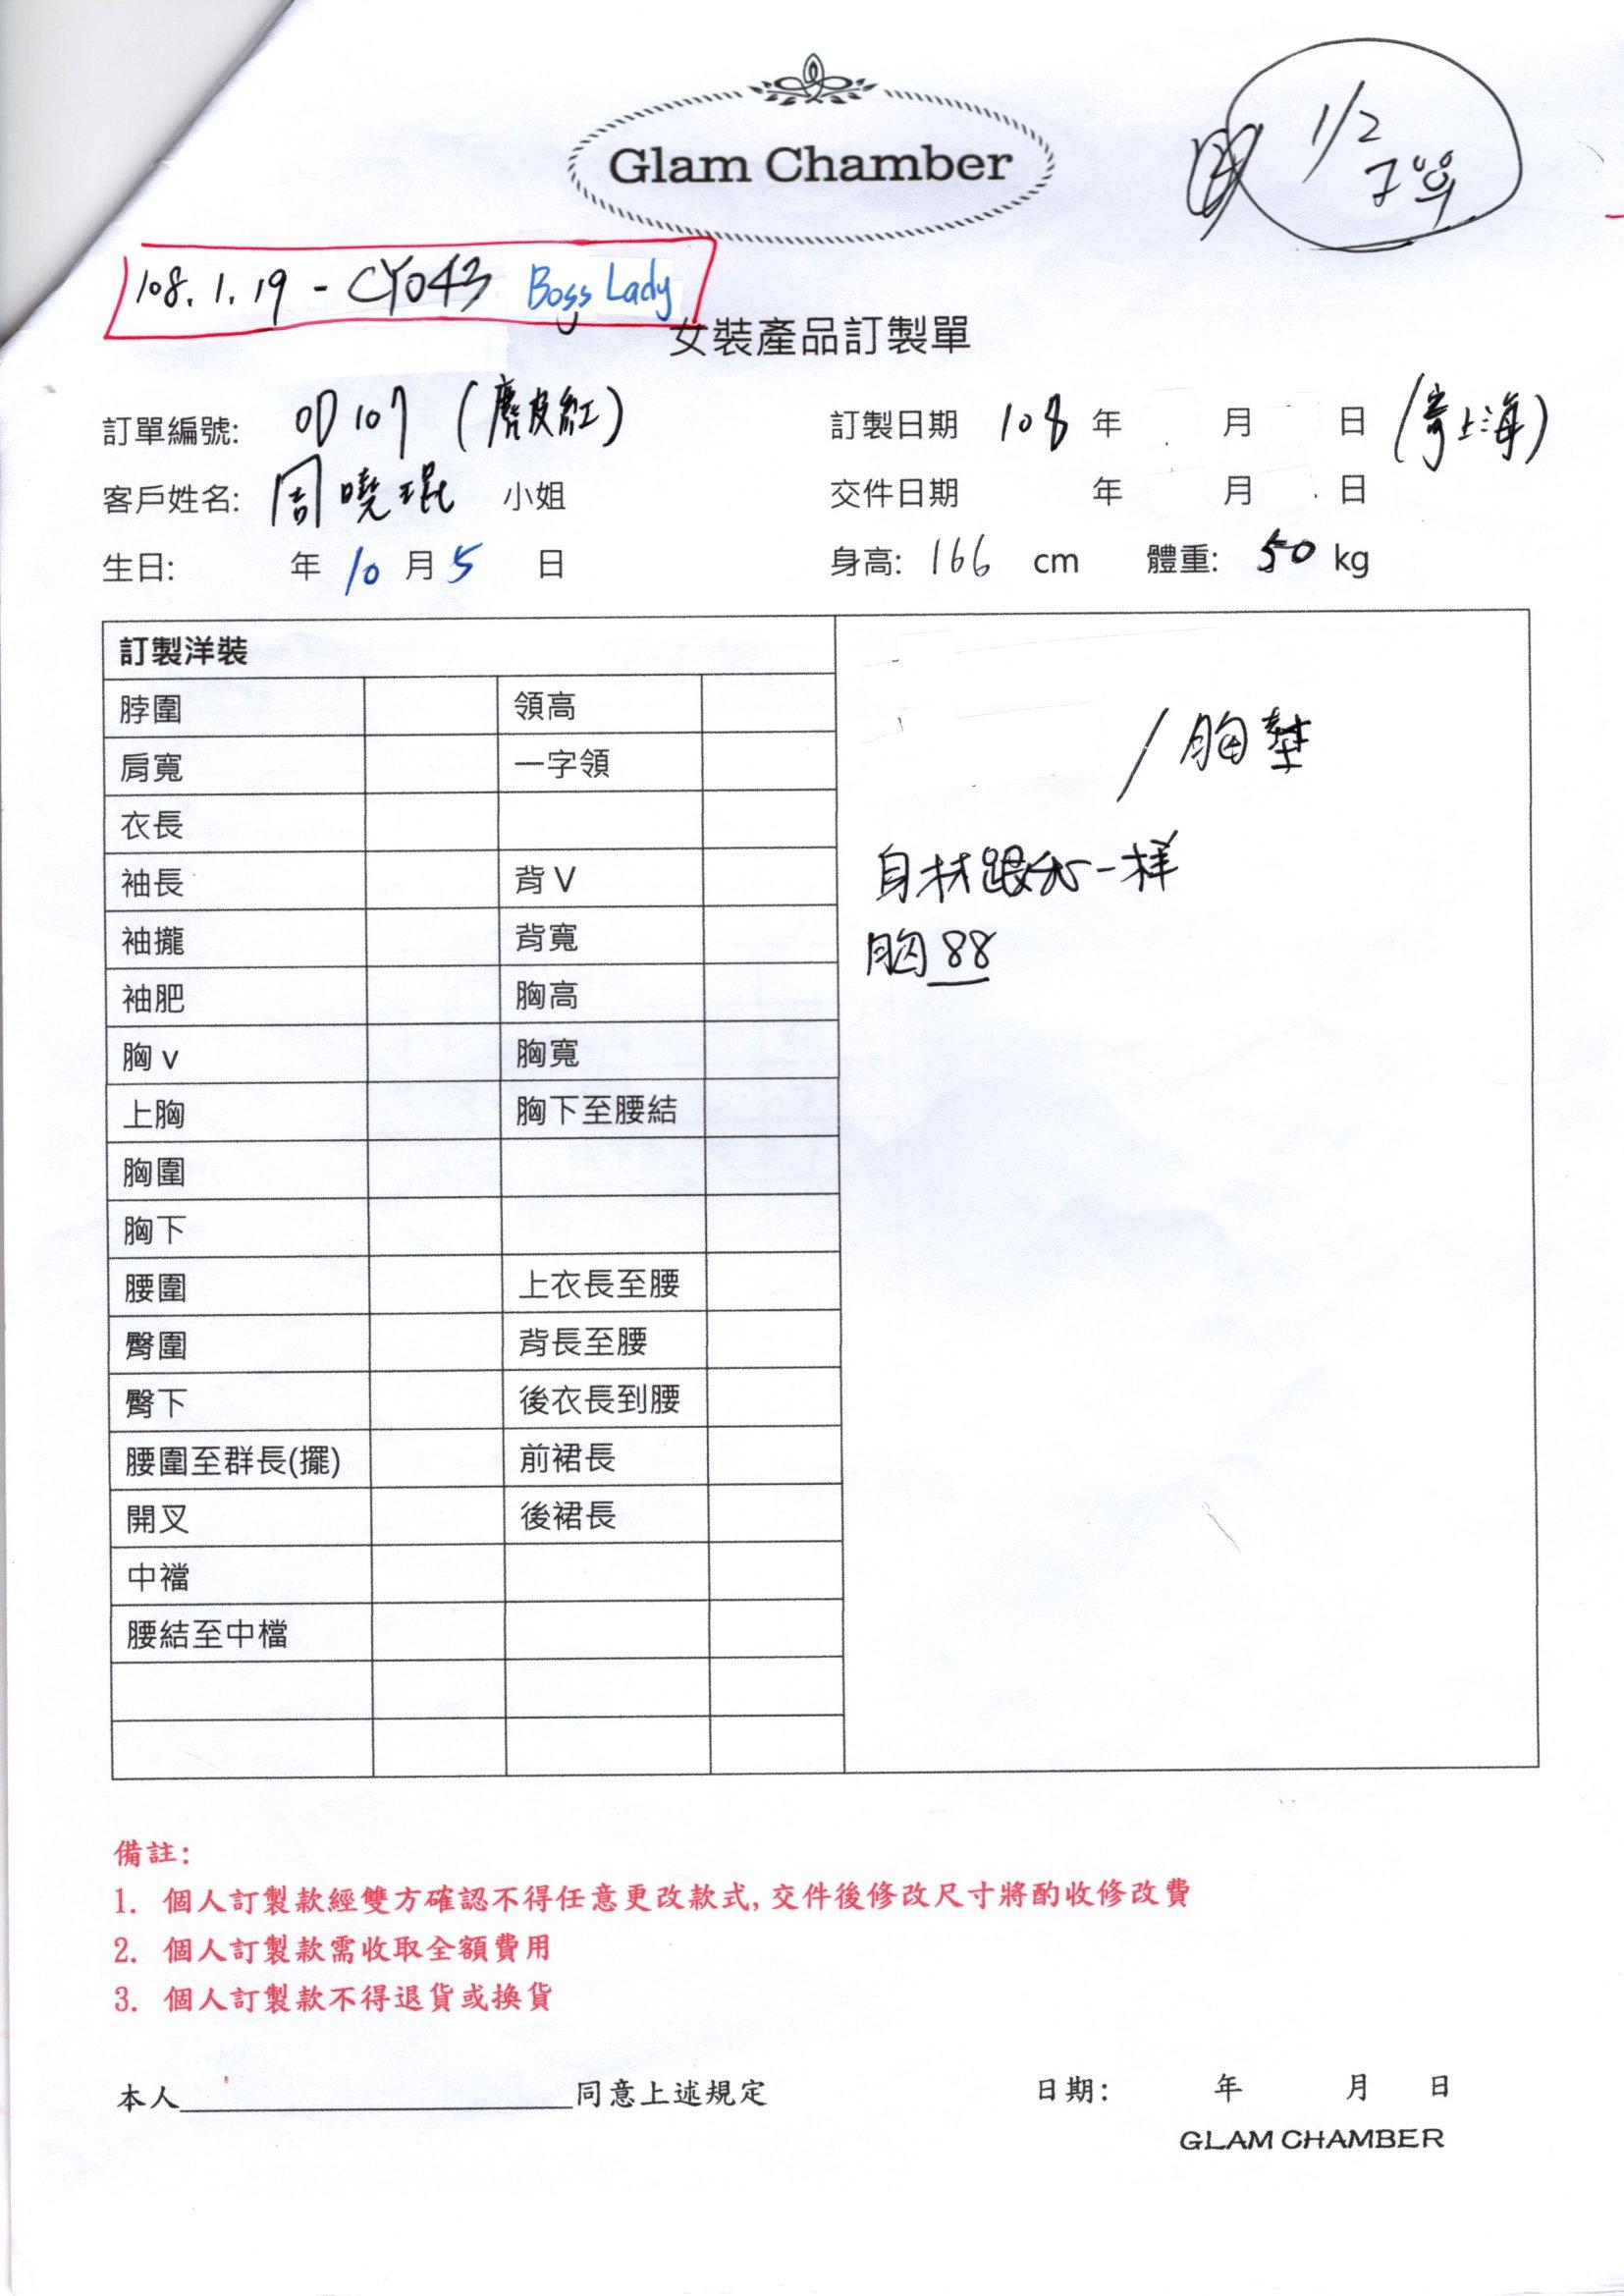 Glam Chamber
1/2
108.1.19 - CY043 Boss Lady
女裝產品訂製單
訂單編號: 107 (磨皮紅) 訂製日期 108 年 月 日 (寄上海)
客戶姓名: 周曉琨 小姐 交件日期 年 月 日
生日: 年 10 月 5 日 身高: 166 cm 體重: 50 kg
訂製洋裝
脖圍 領高
肩寬 一字領
衣長
袖長 背 V
袖攏 背寬
袖肥 胸高
胸 v 胸寬
上胸 胸下至腰結
胸圍
胸下
腰圍 上衣長至腰
臀圍 背長至腰
臀下 後衣長到腰
腰圍至群長(擺) 前裙長
開叉 後裙長
中襠
腰結至中檔
/胸墊
身材跟我一样
胸 88
備註:
1. 個人訂製款經雙方確認不得任意更改款式, 交件後修改尺寸將酌收修改費
2. 個人訂製款需收取全額費用
3. 個人訂製款不得退貨或換貨
本人 同意上述規定 日期: 年 月 日
GLAM CHAMBER